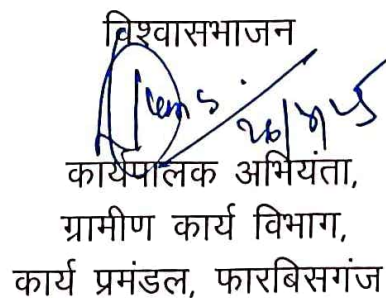 विश्वासभाजन
कार्यपालक अभियंता,
ग्रामीण कार्य विभाग,
कार्य प्रमंडल, फारबिसगंज